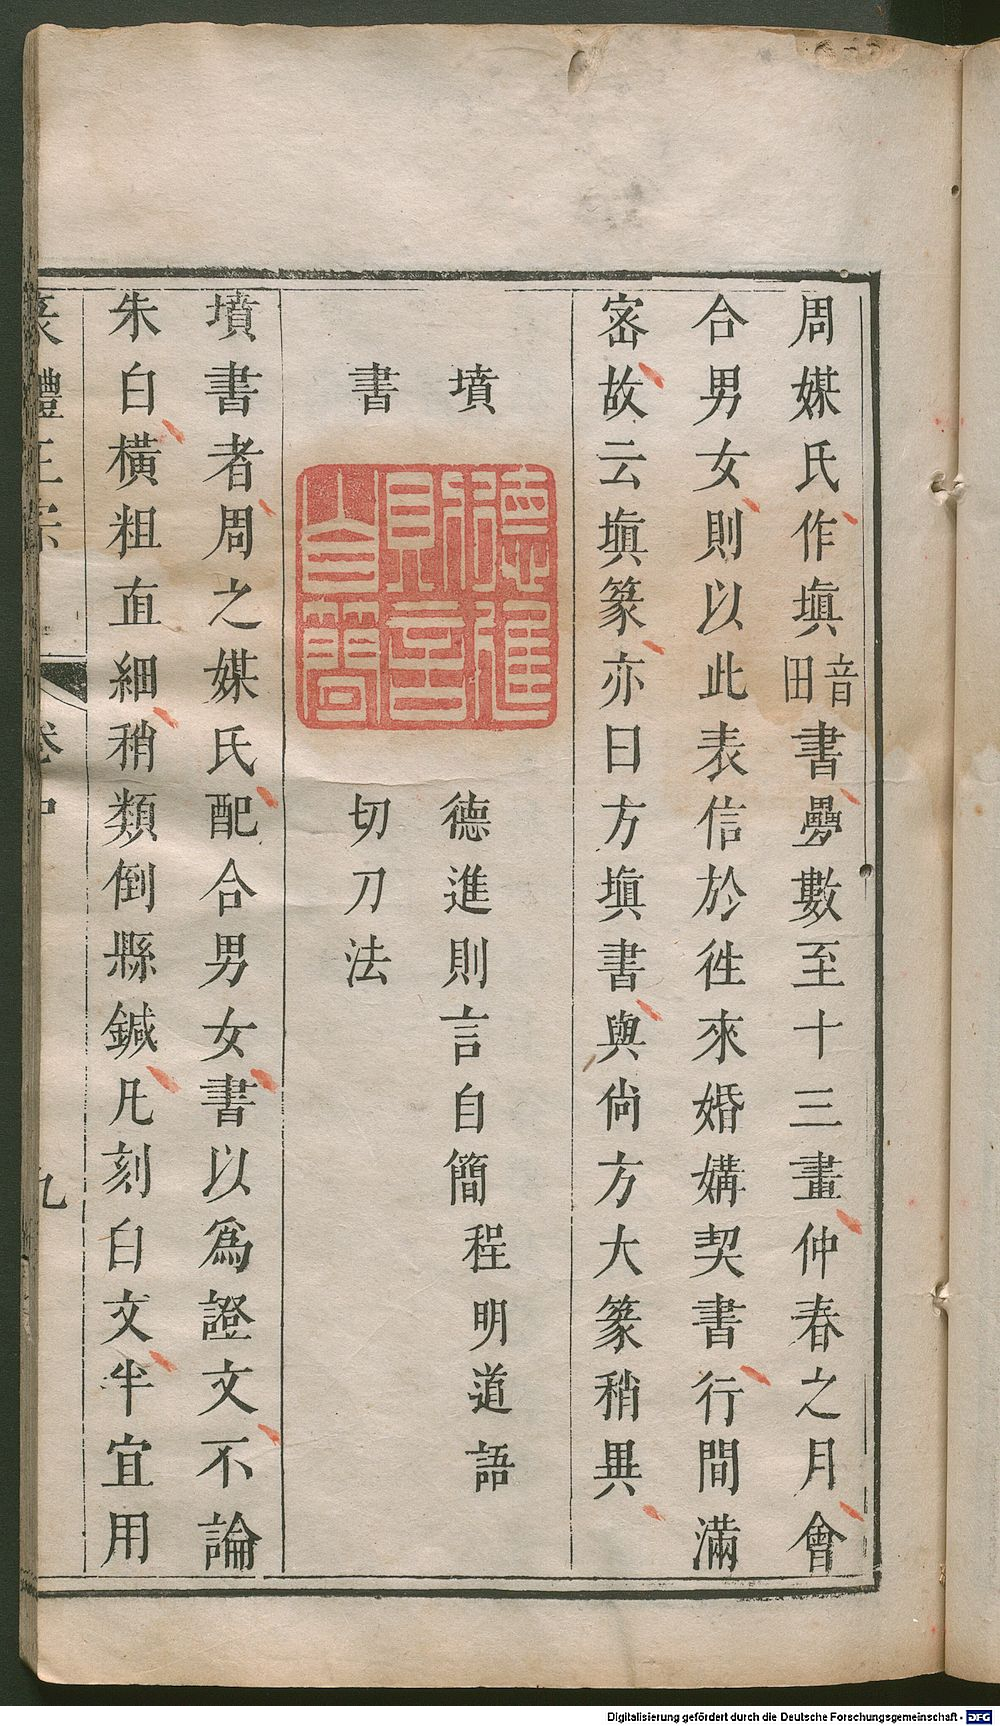 周媒氏作塡音田書疊數至十三畫仲春之月會
合男女則以此表信於徃來婚媾契書行間滿
宻故云塡篆亦曰方塡書與尙方大篆稍異
墳書
德進則言自簡
德進則言自簡程明道語
切刀法
墳書者周之媒氏配合男女書以爲證文不論
朱白橫粗直細稍類倒縣鍼凡刻白文半宜用
篆體正宗
卷中
九
Digitalisierung gefördert durch die Deutsche Forschungsgemeinschaft - DFG